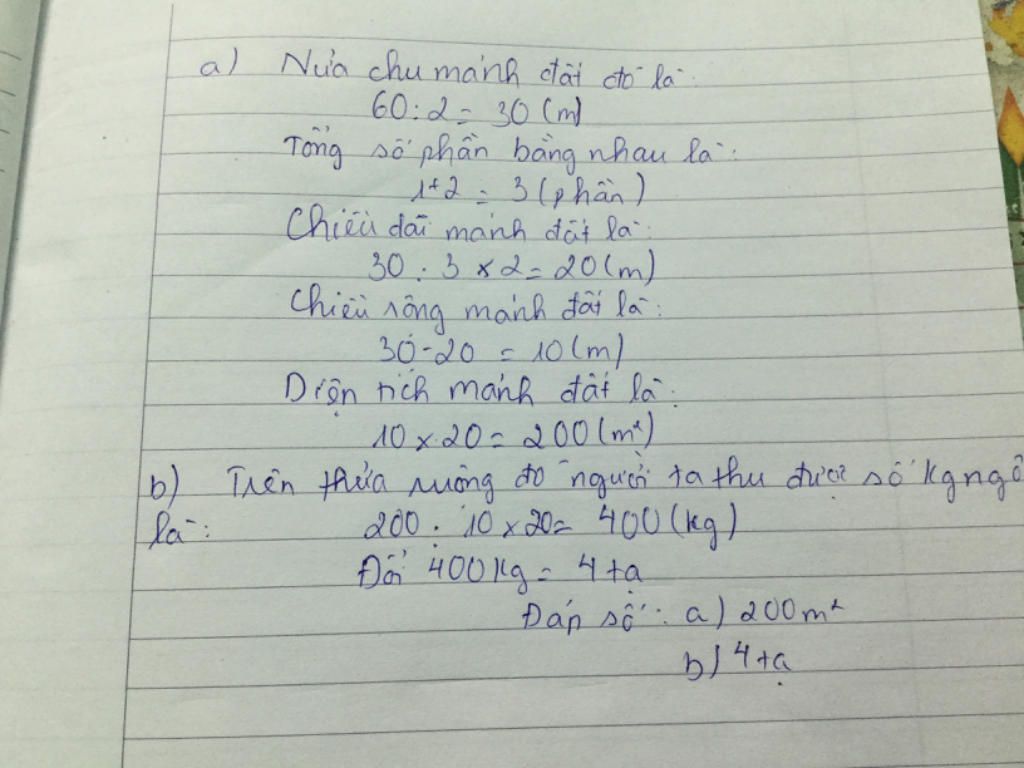 a) Nửa chu mảnh đất đó là:
60 : 2 = 30 (m)
Tổng số phần bằng nhau là:
1+2 = 3 (phần)
Chiều dài mảnh đất là:
30 : 3 x 2 = 20 (m)
Chiều rộng mảnh đất là:
30 - 20 = 10 (m)
Diện tích mảnh đất là:
10 x 20 = 200 (m²)
b) Trên thửa ruộng đó người ta thu được số kg ngô
là: 200 : 10 x 20 = 400 (kg)
Đổi 400 kg = 4 tạ
Đáp số: a) 200 m²
b) 4 tạ